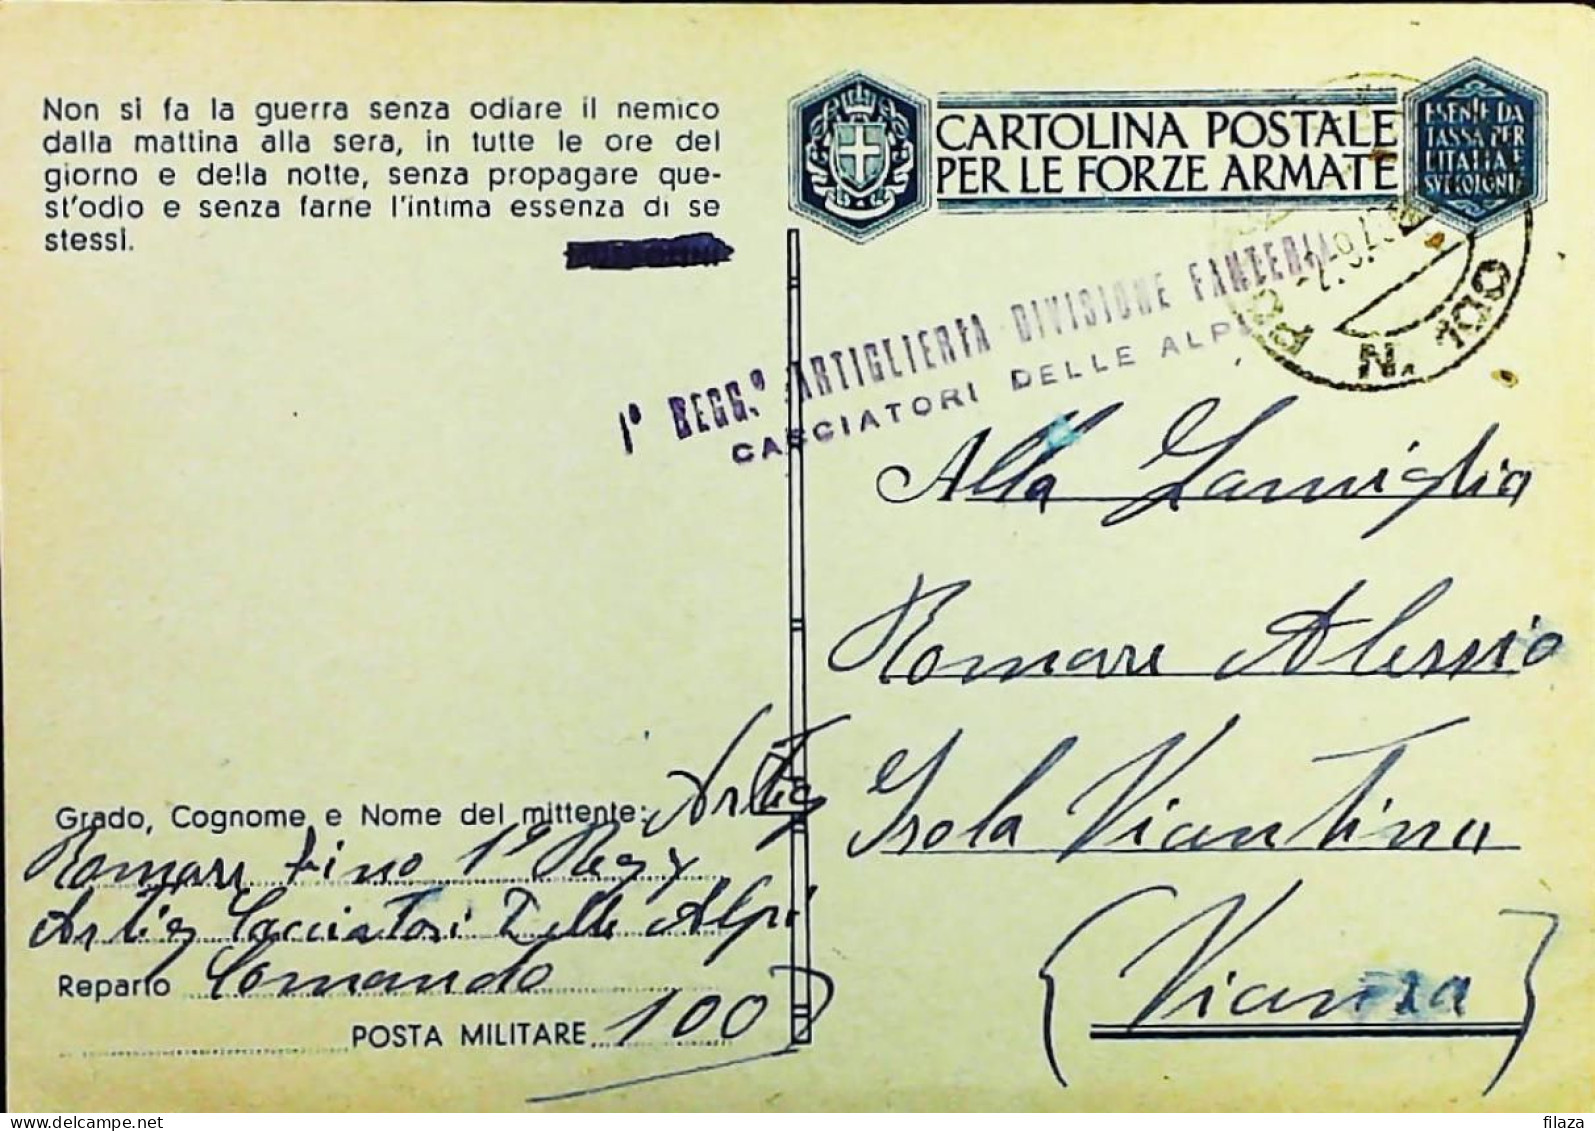 Non si fa la guerra senza odiare il nemico
dalla mattina alla sera, in tutte le ore del
giorno e della notte, senza propagare que-
st'odio e senza farne l'intima essenza di se
stessi.
CARTOLINA POSTALE
PER LE FORZE ARMATE
ESENTE DA
TASSA PER
L'ITALIA E
N. 100
1° REGG.° ARTIGLIERIA DIVISIONE FANTERIA
CACCIATORI DELLE ALPI
Alla Famiglia
Romare Alessio
Isola Viantina
(Vianza)
Grado, Cognome e Nome del mittente: Artig
Romare Lino 1° Regg
Artig Cacciatori Delle Alpi
Reparto Comando
POSTA MILITARE 100
filaza